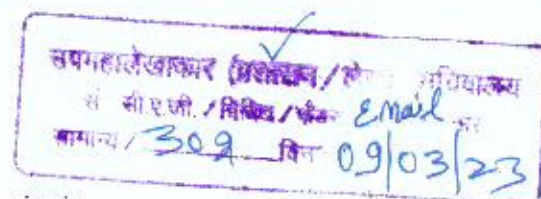 उपमहालेखाकार (प्रशासन/ सचिवालय
सं सी.ए.जी. / विविध / Email
सामान्य / 309 दिन 09/03/23